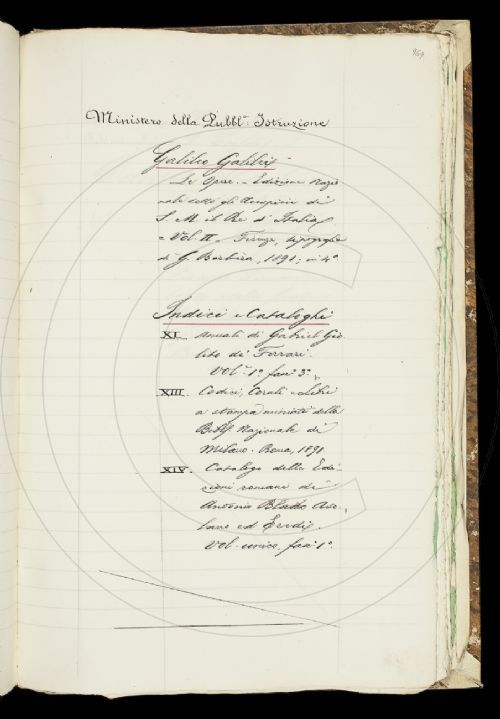 959
Ministero della Pubbl.ª Istruzione
Galileo Galilei
Le Opere - Edizione Nazio
nale sotto gli Auspicii di
S. M. il Re d'Italia
- Vol. II - Firenze, tipografia
di G. Barbèra, 1891; in 4°
Indici e Cataloghi
XI. Annali di Gabriel Gio
lito de' Ferrari.
Vol. 1° fasc. 3°
XIII. Codici, Corali e Libri
a stampa miniati della
Bibl. Nazionale di
Milano. Roma, 1891
XIV. Catalogo delle Edi
zioni romane di
Antonio Blado Aso
lano ed Eredi.
Vol. unico, fasc. 1°.